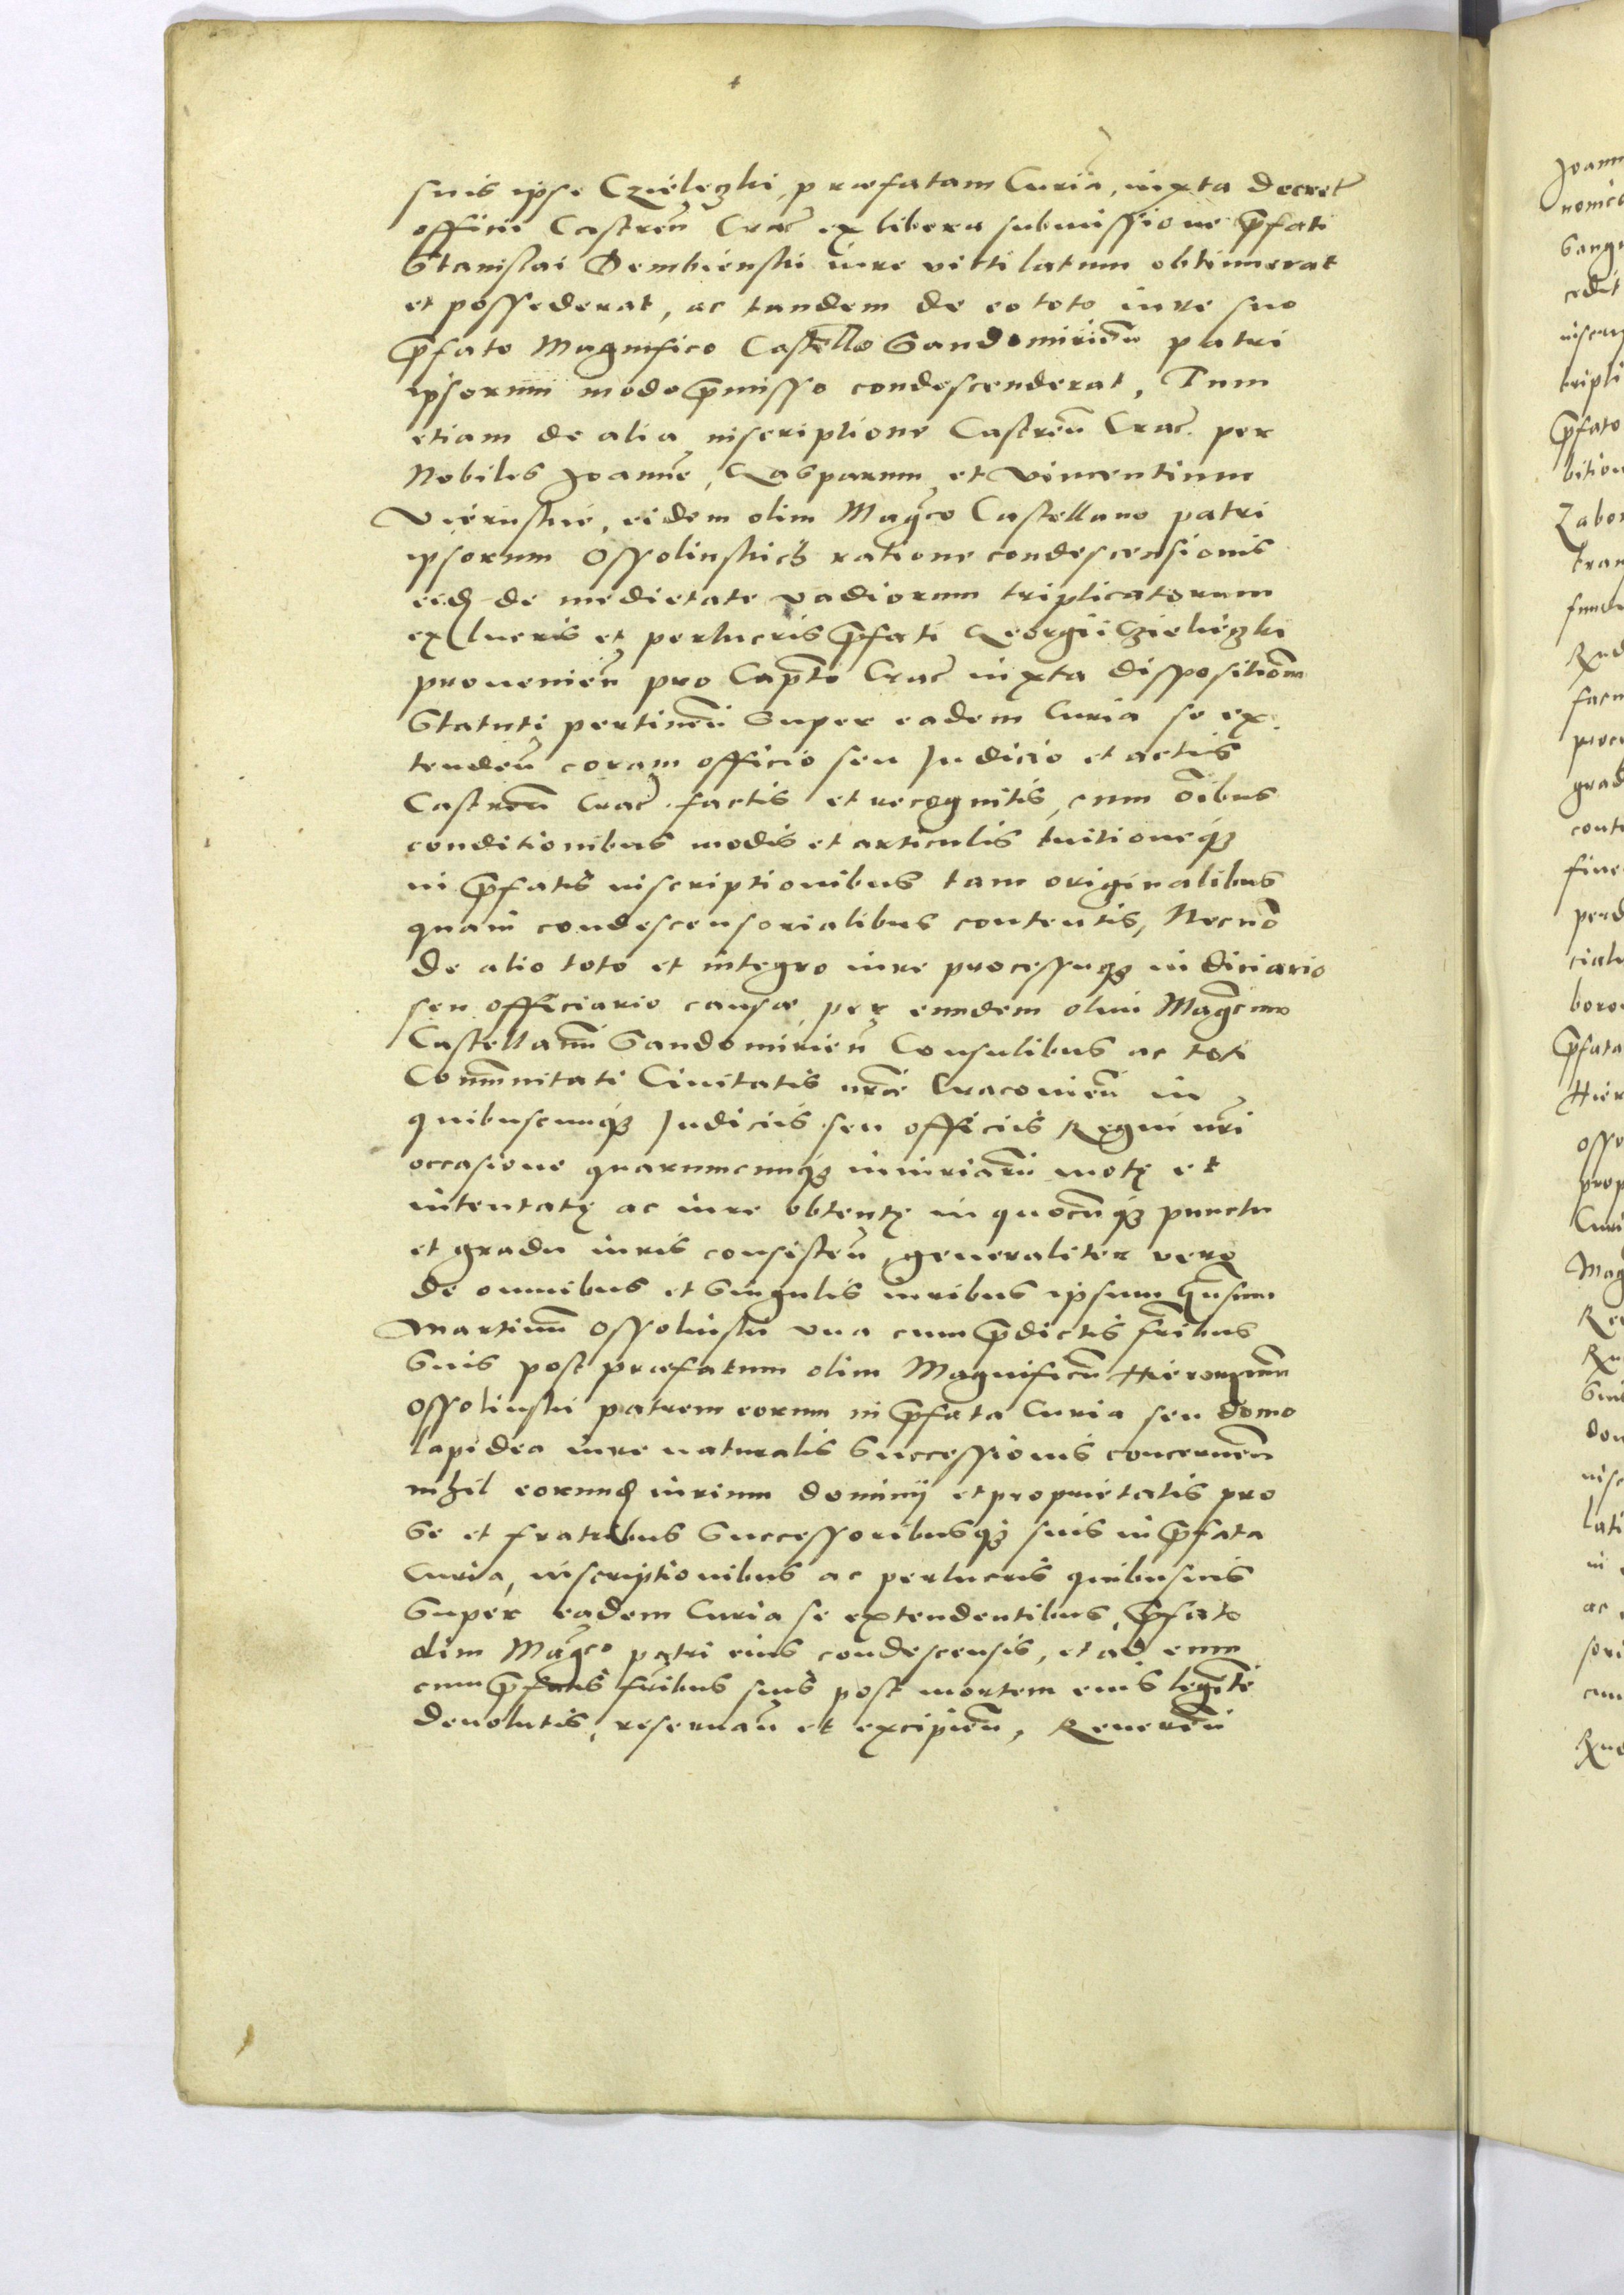 suis ipse Czieleczki, præfatam Curiã, iuxta decret
officii Castreñ Crac̃ ex libera submissione p̃fati
Stanislai Dembienski iure vittilatum obtinuerat
et possederat, ac tandem de eo toto iure suo
p̃fato Magnifico Castello Sandomirieñ patri
ipsorum modo p̃misso condescenderat, Tum
etiam de alia inscriptione Castreñ Crac̃ per
Nobiles Joannẽ, Gasparum et Vincentium
eidem olim Mag̃co Castellano patri
ipsorum Ossolinskich ratione condescensionis
eiꝺ de medietate vadiorum triplicatorum
ex lucris et perlucris p̃fati Georgii Czieleczki
provenieñ pro Cap̃to Crac̃ iuxta dispositiõm
Statuti pertineñ super eadem Curia se ex
tendeñ coram officio seu Judicio et actis
Castreñ Crac̃ factis et recognitis, cum õibus
conditionibus modis et articulis tuitioneq₃
in p̃fatis inscriptionibus tam originalibus
quam condescensorialibus contentis, Necnõ
de alio toto et integro iure processuq₃ iudiciario
seu officiario causæ per eundem olim Mag̃cum
Castellanũ Sandomirieñ Consulibus ac toti
Com̃unitati Civitatis nr̃æ Cracovieñ in
quibuscunq₃ Judiciis seu officiis Regni nr̃i
occasione quarumcunq₃ iniuriarũ motę et
intentatę ac iure obtentę in quocũq₃ punctu
et gradu iuris consisteñ, generaliter vero
de omnibus et singulis iuribus ipsum
Martinũ Ossolinski una cum p̃dictis fr̃ibus
suis post præfatum olim Magnificũ Hieronymũ
Ossolinski patrem eorum in p̃fata Curia seu domo
lapidea iure naturalis successionis concerneñ
nihil eorunꝺ iurium dominij et proprietatis pro
se et fratribus successoribusq₃ suis in p̃fata
Curia, inscriptionibus ac perlucris quibusuis
super eadem Curia se extendentibus, p̃fato
olim Mag̃co patri eius condescensis, et ad eum
cum p̃fatis fr̃ibus suis post mortem eius legitẽ
devolutis, reservañ et excipieñ, Revereñ